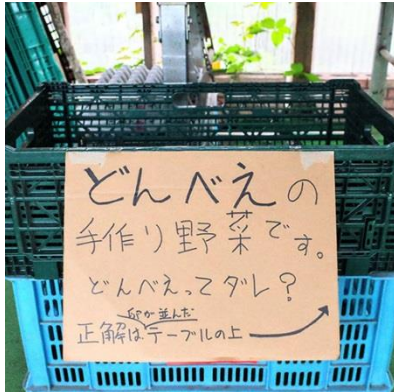 どんべえの
手作り野菜です。
どんべえってダレ？
卵が並んだ
正解はテーブルの上